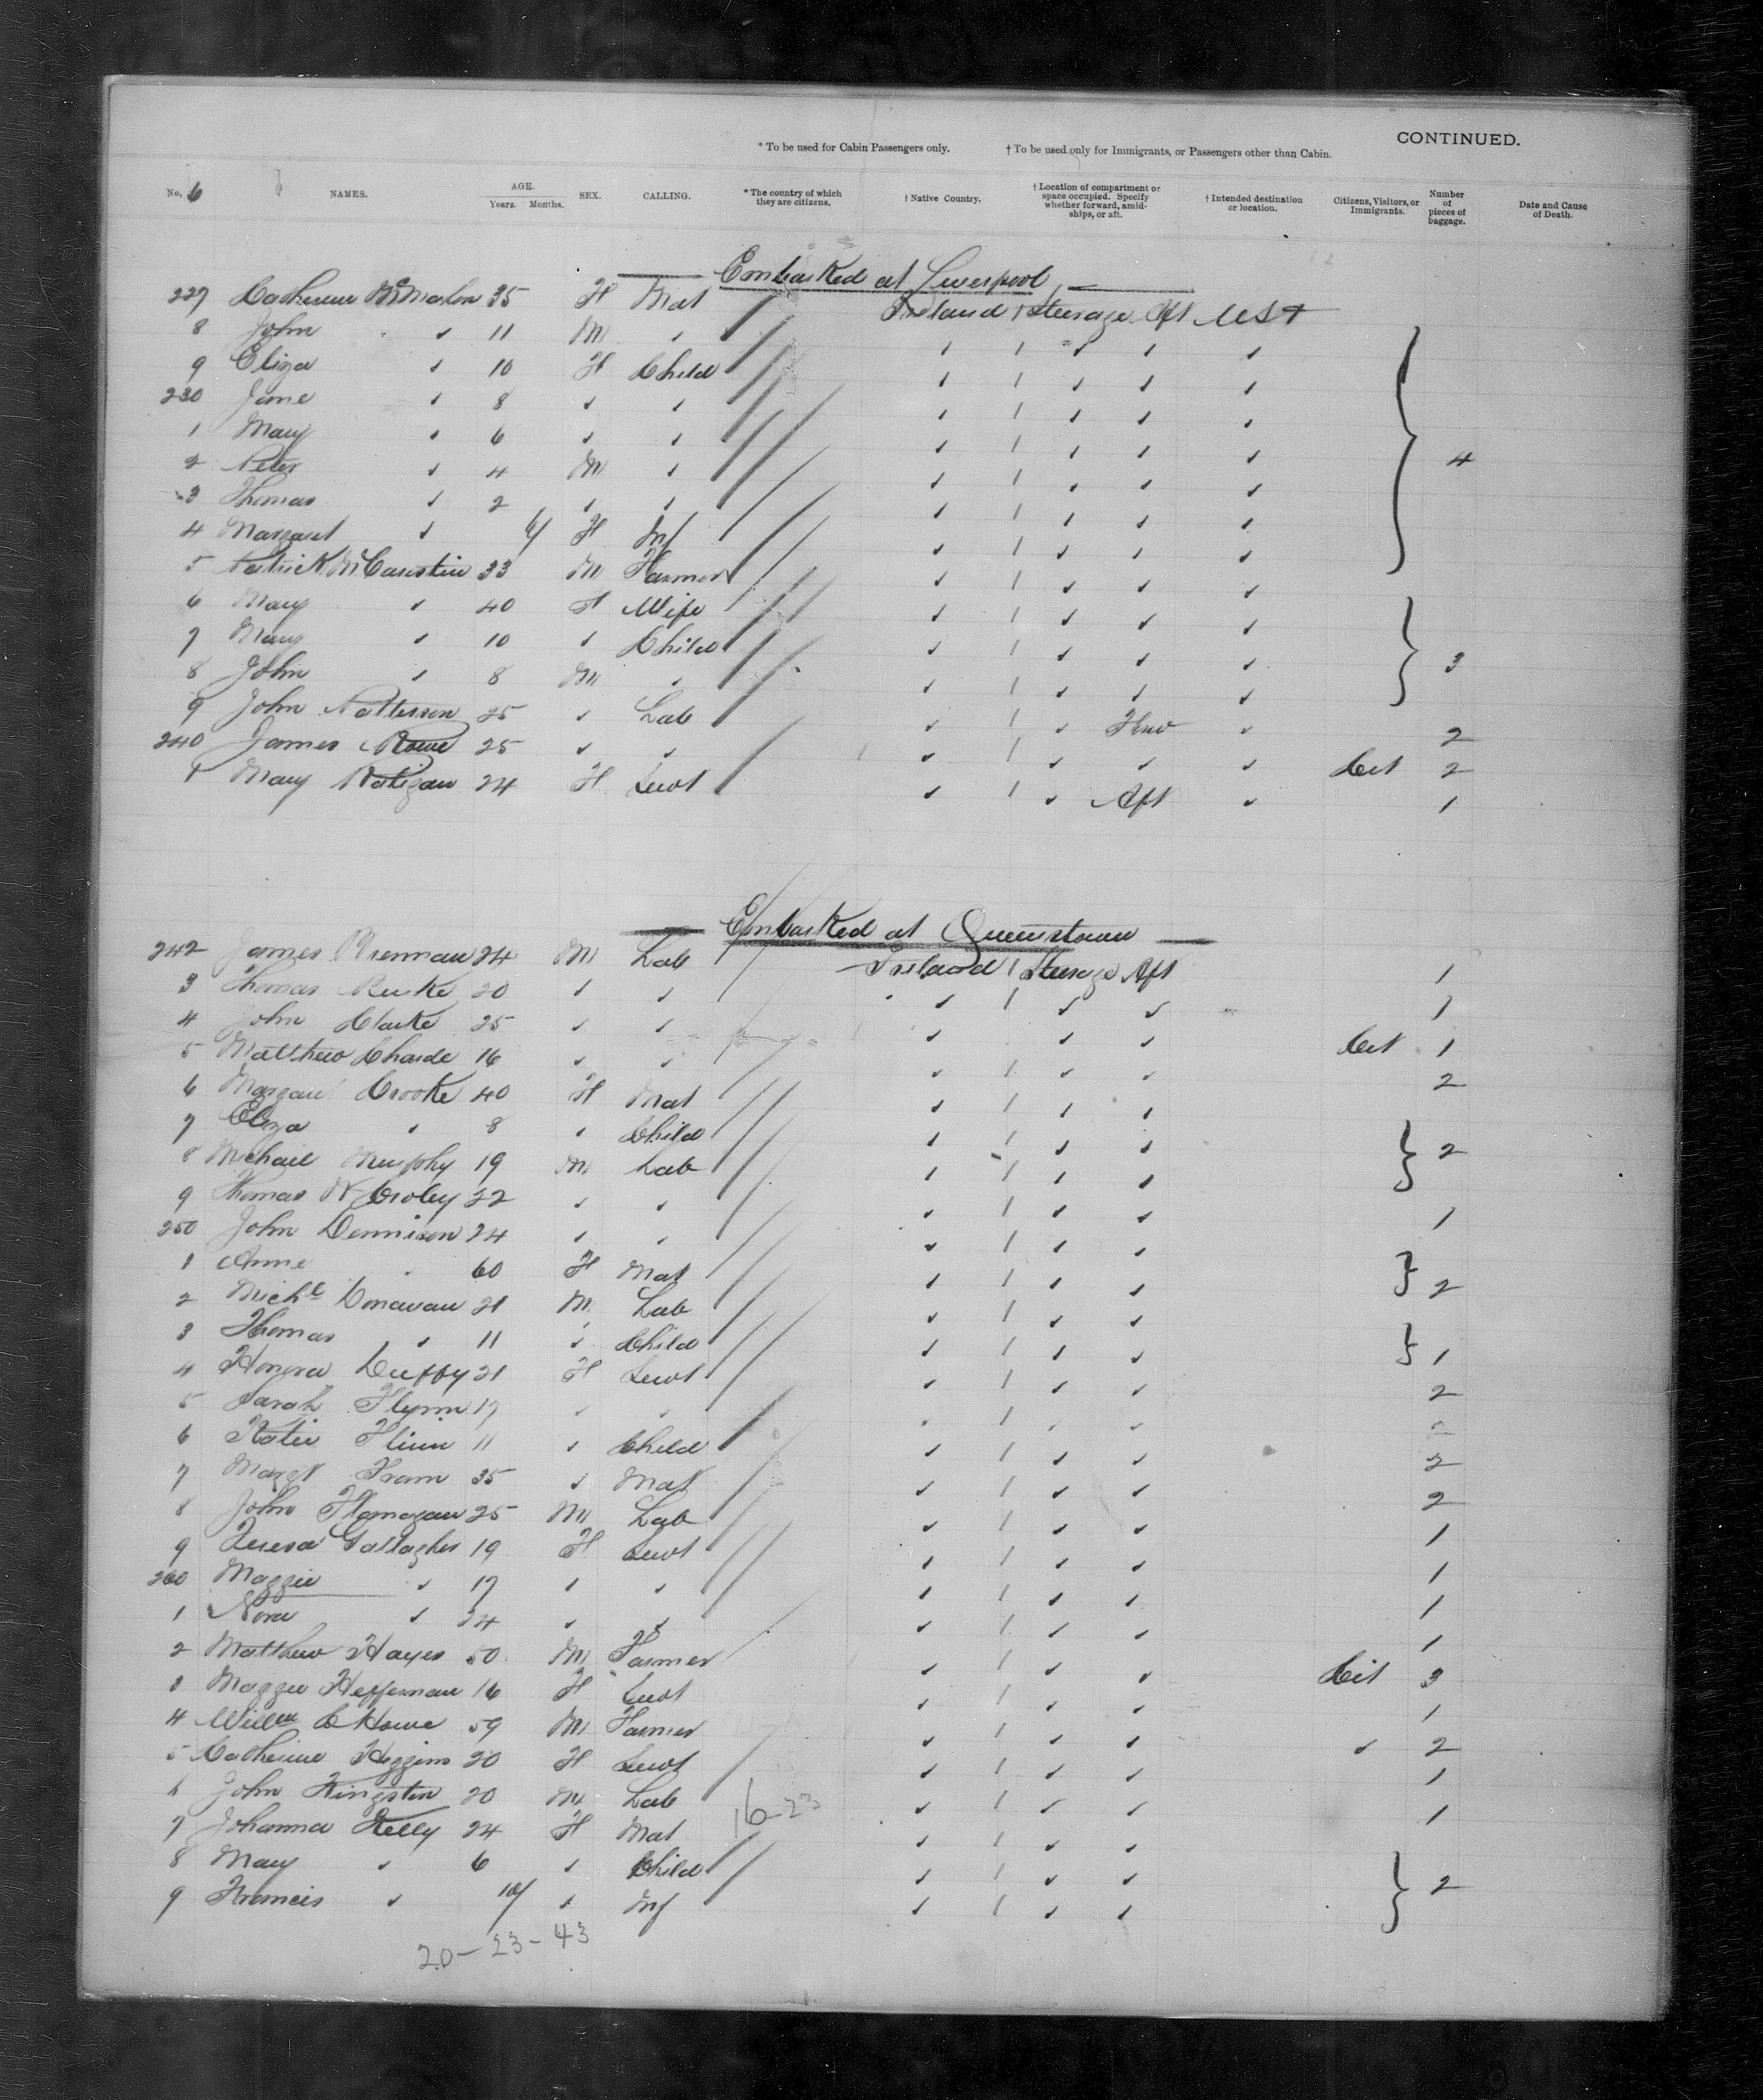 CONTINUED.
* To be used for Cabin Passengers only. † To be used only for Immigrants, or Passengers other than Cabin.
No. 6 NAMES. AGE. Years. Months. SEX. CALLING. * The country of which they are citizens. † Native Country. † Location of compartment or space occupied. Specify whether forward, amidships, or aft. † Intended destination or location. Citizens, Visitors, or Immigrants. Number of pieces of baggage. Date and Cause of Death.
Embarked at Liverpool
227 Catherine McMahon 35 F Mat Ireland 1 Steerage Aft USA
8 John 11 M
9 Eliza 10 F Child
230 Jane 8
1 Mary 6
2 Peter 4 M 4
3 Thomas 2
4 Margaret 6/ F Inf
5 Patrick 33 M Farmer
6 Mary 40 F Wife
7 Mary 10 Child 3
8 John 8 M
9 John Patterson 25 Lab Forw 2
240 James Rowe 25 Cit 2
1 Mary Ratigan 24 F Servt Aft 1
Embarked at Queenstown
242 James Brennan 24 M Lab Ireland 1 Steerage Aft 1
3 Thomas Burke 20 1
4 John Clarke 25 Cit 1
5 Matthew 16 2
6 Margaret Crooke 40 F Mat
7 Eliza 8 Child 2
8 Michael Murphy 19 M Lab
9 Thomas 22 1
250 John Dennison 24
1 Anne 60 F Mat 2
2 Michl Donavan 21 M Lab
3 Thomas 11 Child 1
4 Honora Duffy 21 F Servt 2
5 Sarah Flynn 17 2
6 Katie Flinn 11 Child 2
7 Margt 35 Mat 2
8 John Flanagan 25 M Lab 1
9 Teresa Gallagher 19 F Servt 1
260 Maggie 17 1
1 Nora 24 1
2 Matthew Hayes 50 M Farmer Cit 3
3 Maggie Heffernan 16 F Servt 1
4 Willm C Howe 59 M Farmer 2
5 Catherine Higgins 20 F Servt 1
6 John Kingston 20 M Lab 1
16-23
7 Johanna Kelly 24 F Mat
8 Mary 6 Child 2
9 Francis 10/ Inf
20-23-43